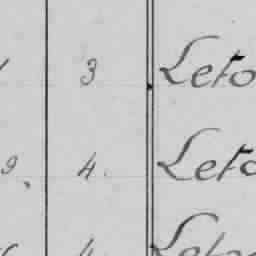 3 Leto
9, 4. Leto
4 Leto